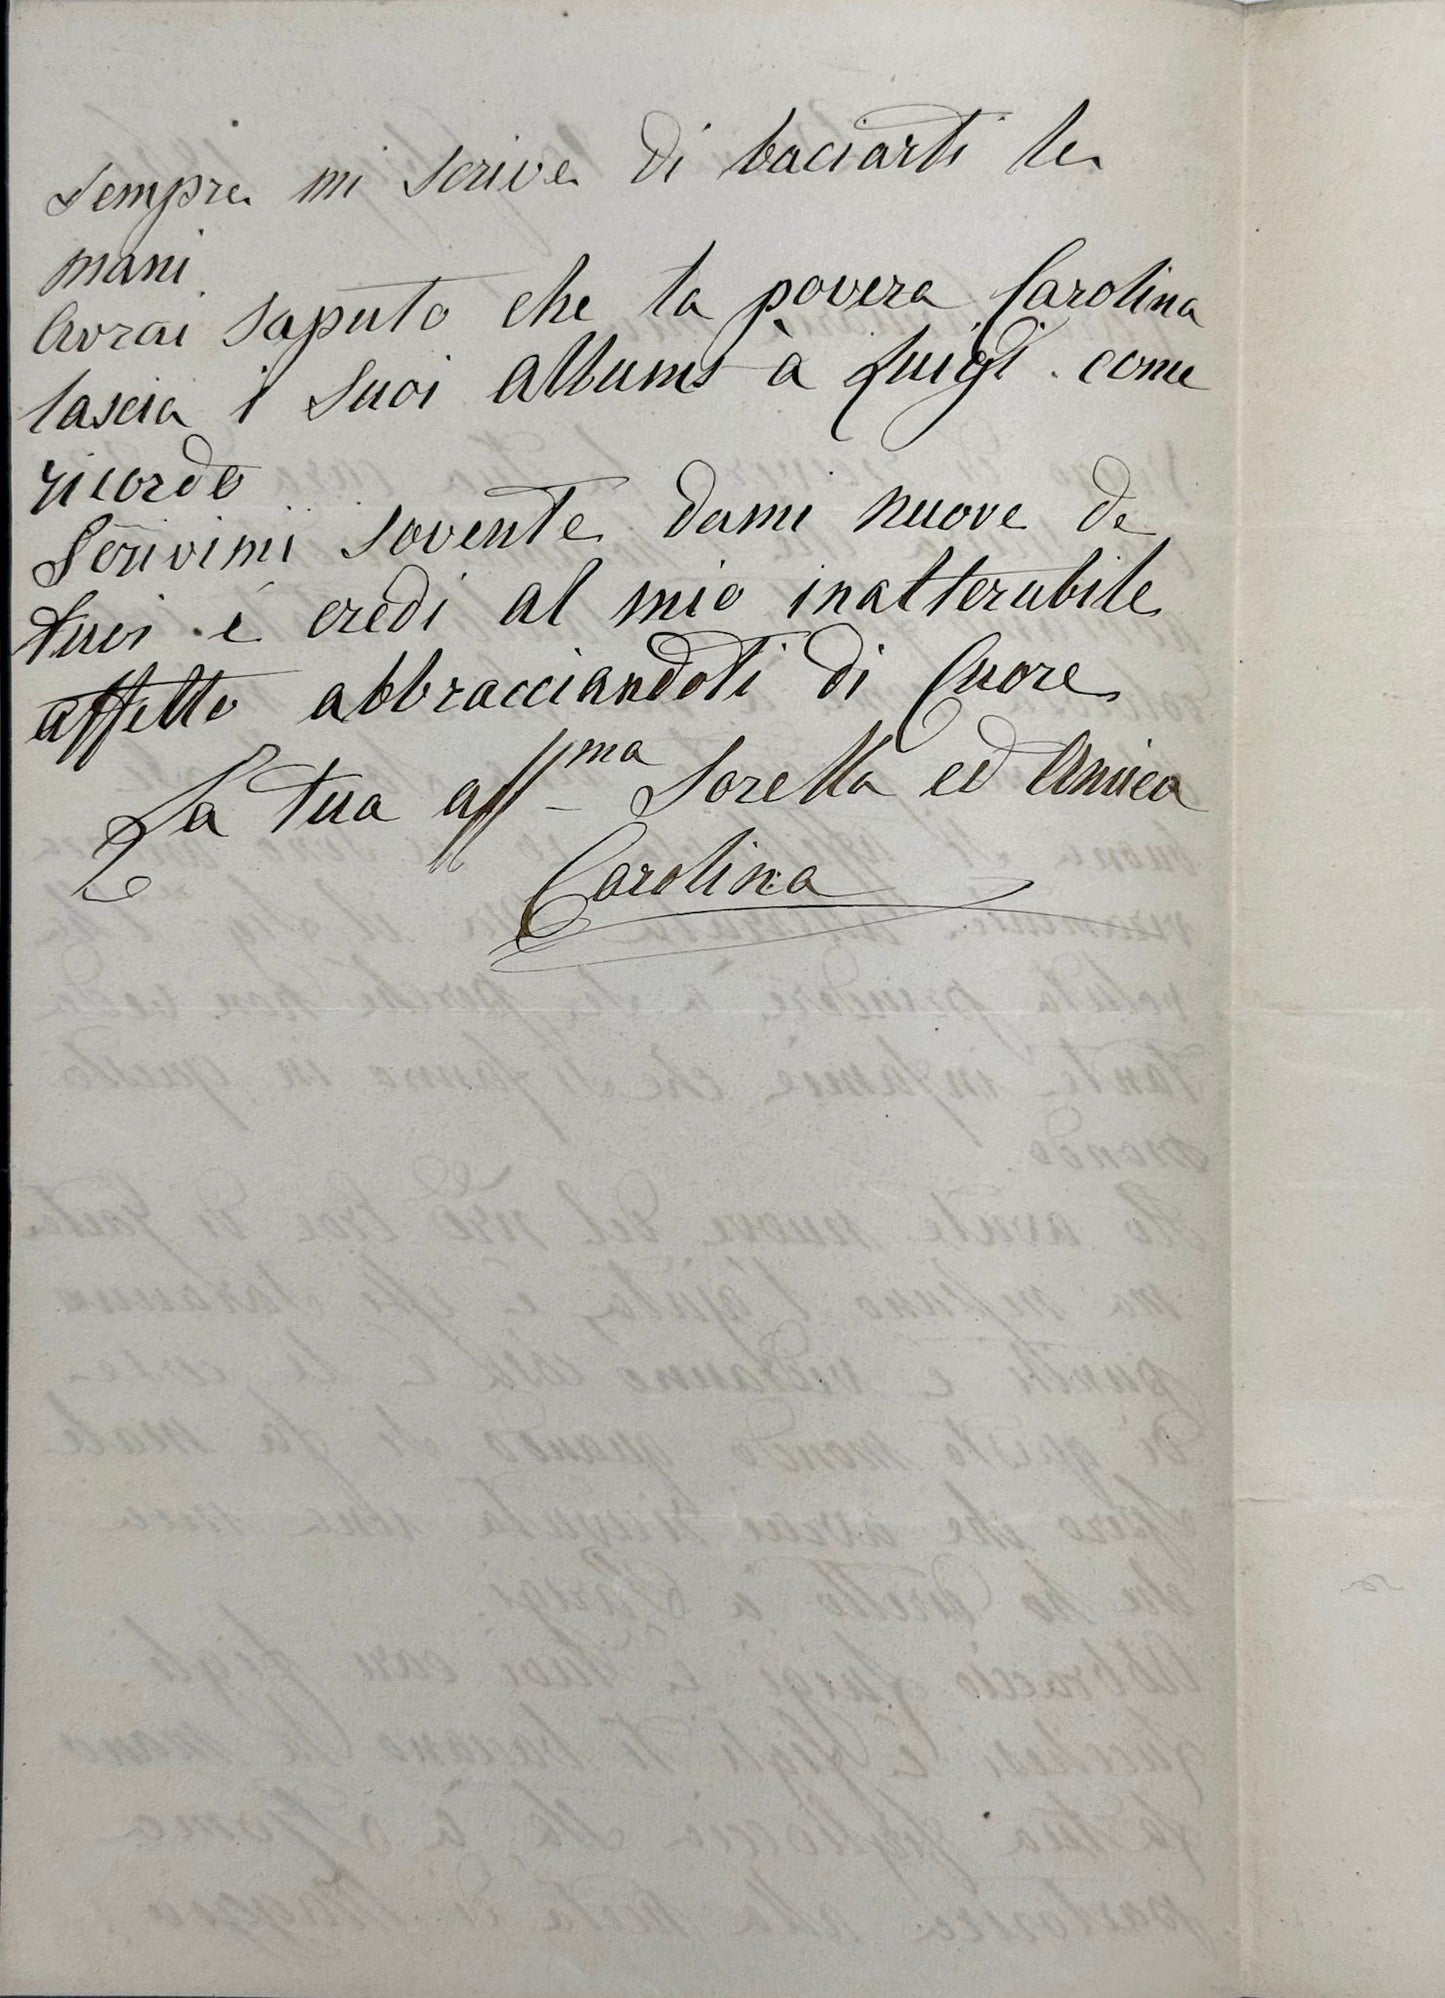 sempre mi scrive di baciarti le
mani
Avrai saputo che la povera Carolina
lascia i suoi albums à Luigi come
ricordo
Scrivimi sovente dami nuove de
tuoi e credi al mio inalterabile
affetto abbracciandoti di Cuore
La tua aff^ma Sorella ed Amica
Carolina